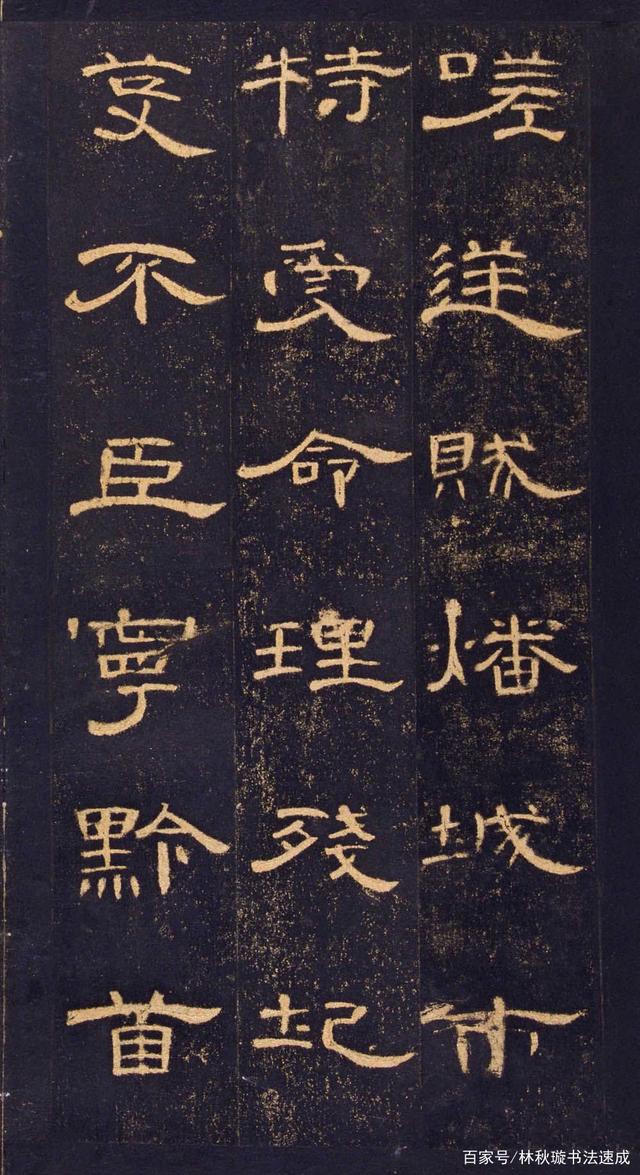 嗟逆賊燔城市
特受命理殘圮
芟不臣寧黔首
百家号/林秋璇书法速成